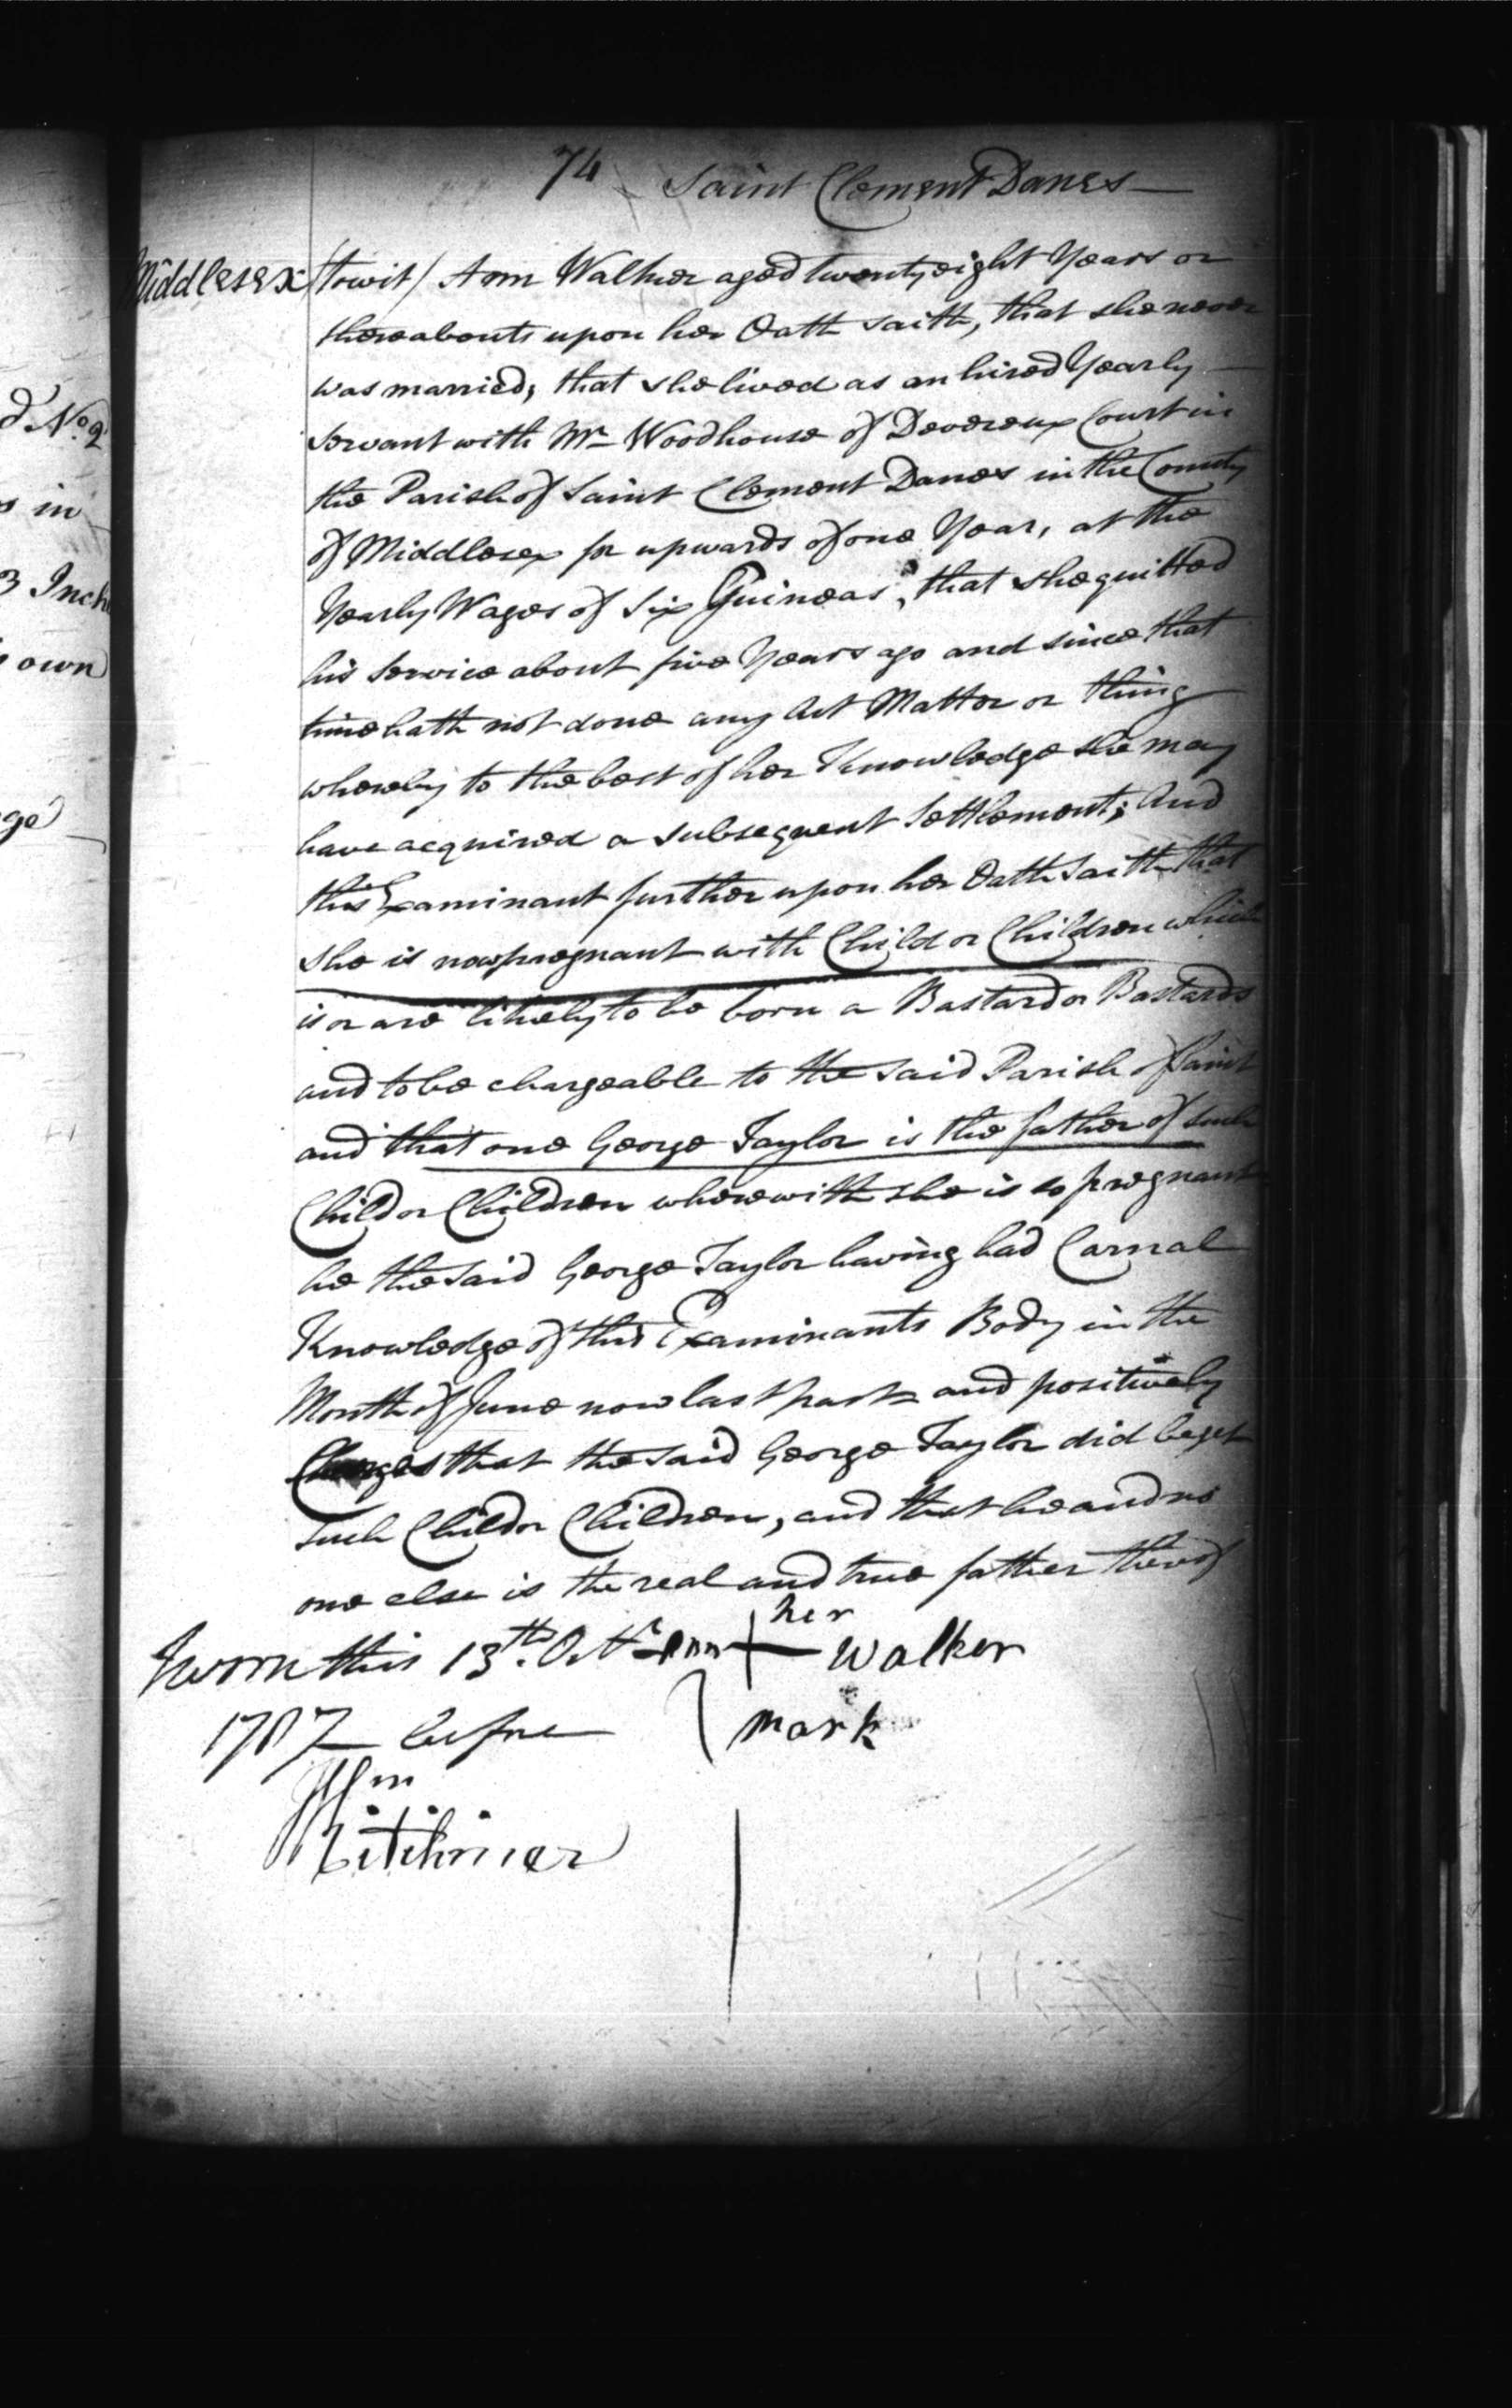 d No. 2
s in
3 Inch
own
ge
74 Saint Clement Danes
Middlesex (towit) Ann Walker aged twenty eight Years or
thereabouts upon her Oath saith, that she never
was married, that she lived as an hired Yearly
Servant with Mr Woodhouse of Devereux Court in
the Parish of Saint Clement Danes in the County
of Middlesex for upwards of one Year, at the
Yearly Wages of Six Guineas, that she quitted
his Service about five Years ago and since that
time hath not done any Act Matter or thing
whereby to the best of her Knowledge she may
have acquired a subsequent Settlement; And
this Examinant further upon her Oath saith that
she is now pregnant with Child or Children which
is or are likely to be born a Bastard or Bastards
and to be chargeable to the said Parish of Saint
and that one George Taylor is the father of such
Child or Children wherewith she is so pregnant
he the said George Taylor having had Carnal
Knowledge of this Examinants Body in the
Month of June now last past and positively
Charges that the said George Taylor did beget
such Child or Children, and that he and no
one else is the real and true father thereof
Sworn this 13th. Octr Ann + her Walker
1787 before mark
Wm